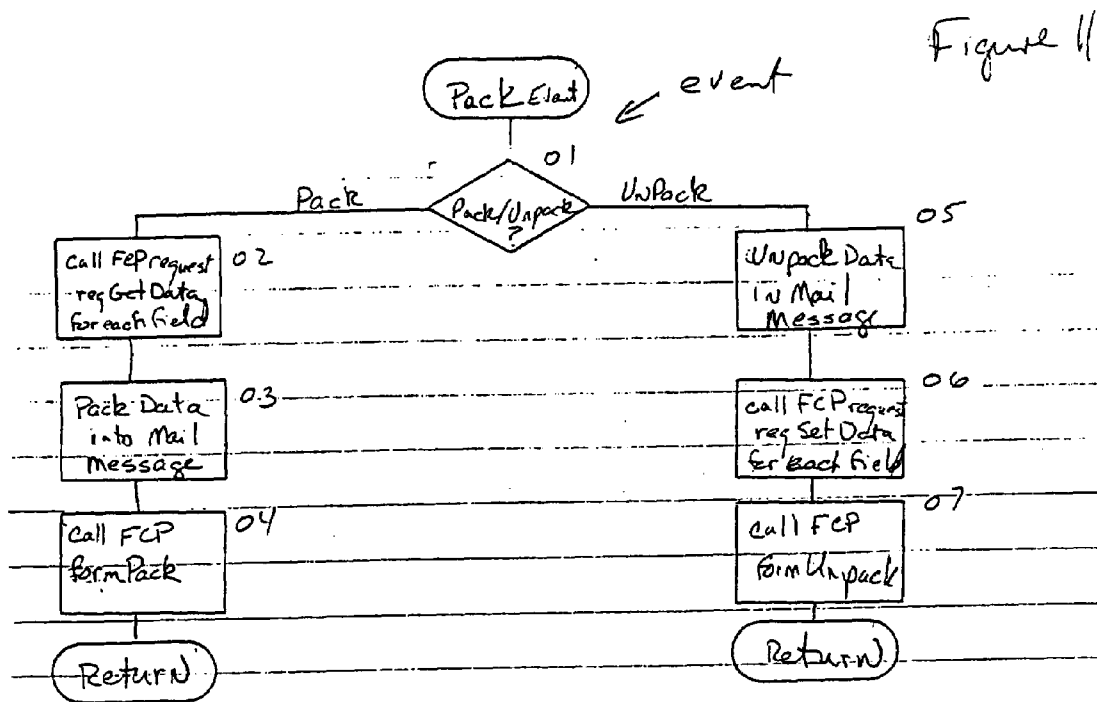 Figure 11
Pack Event
event
01
Pack
Pack/Unpack
?
UnPack
call FCP request
reqGetData
for each field
02
Pack Data
into Mail
Message
03
call FCP
formPack
04
Return
UNpack Data
in Mail
Message
05
call FCP request
reqSetData
for each field
06
call FCP
formUnpack
07
Return